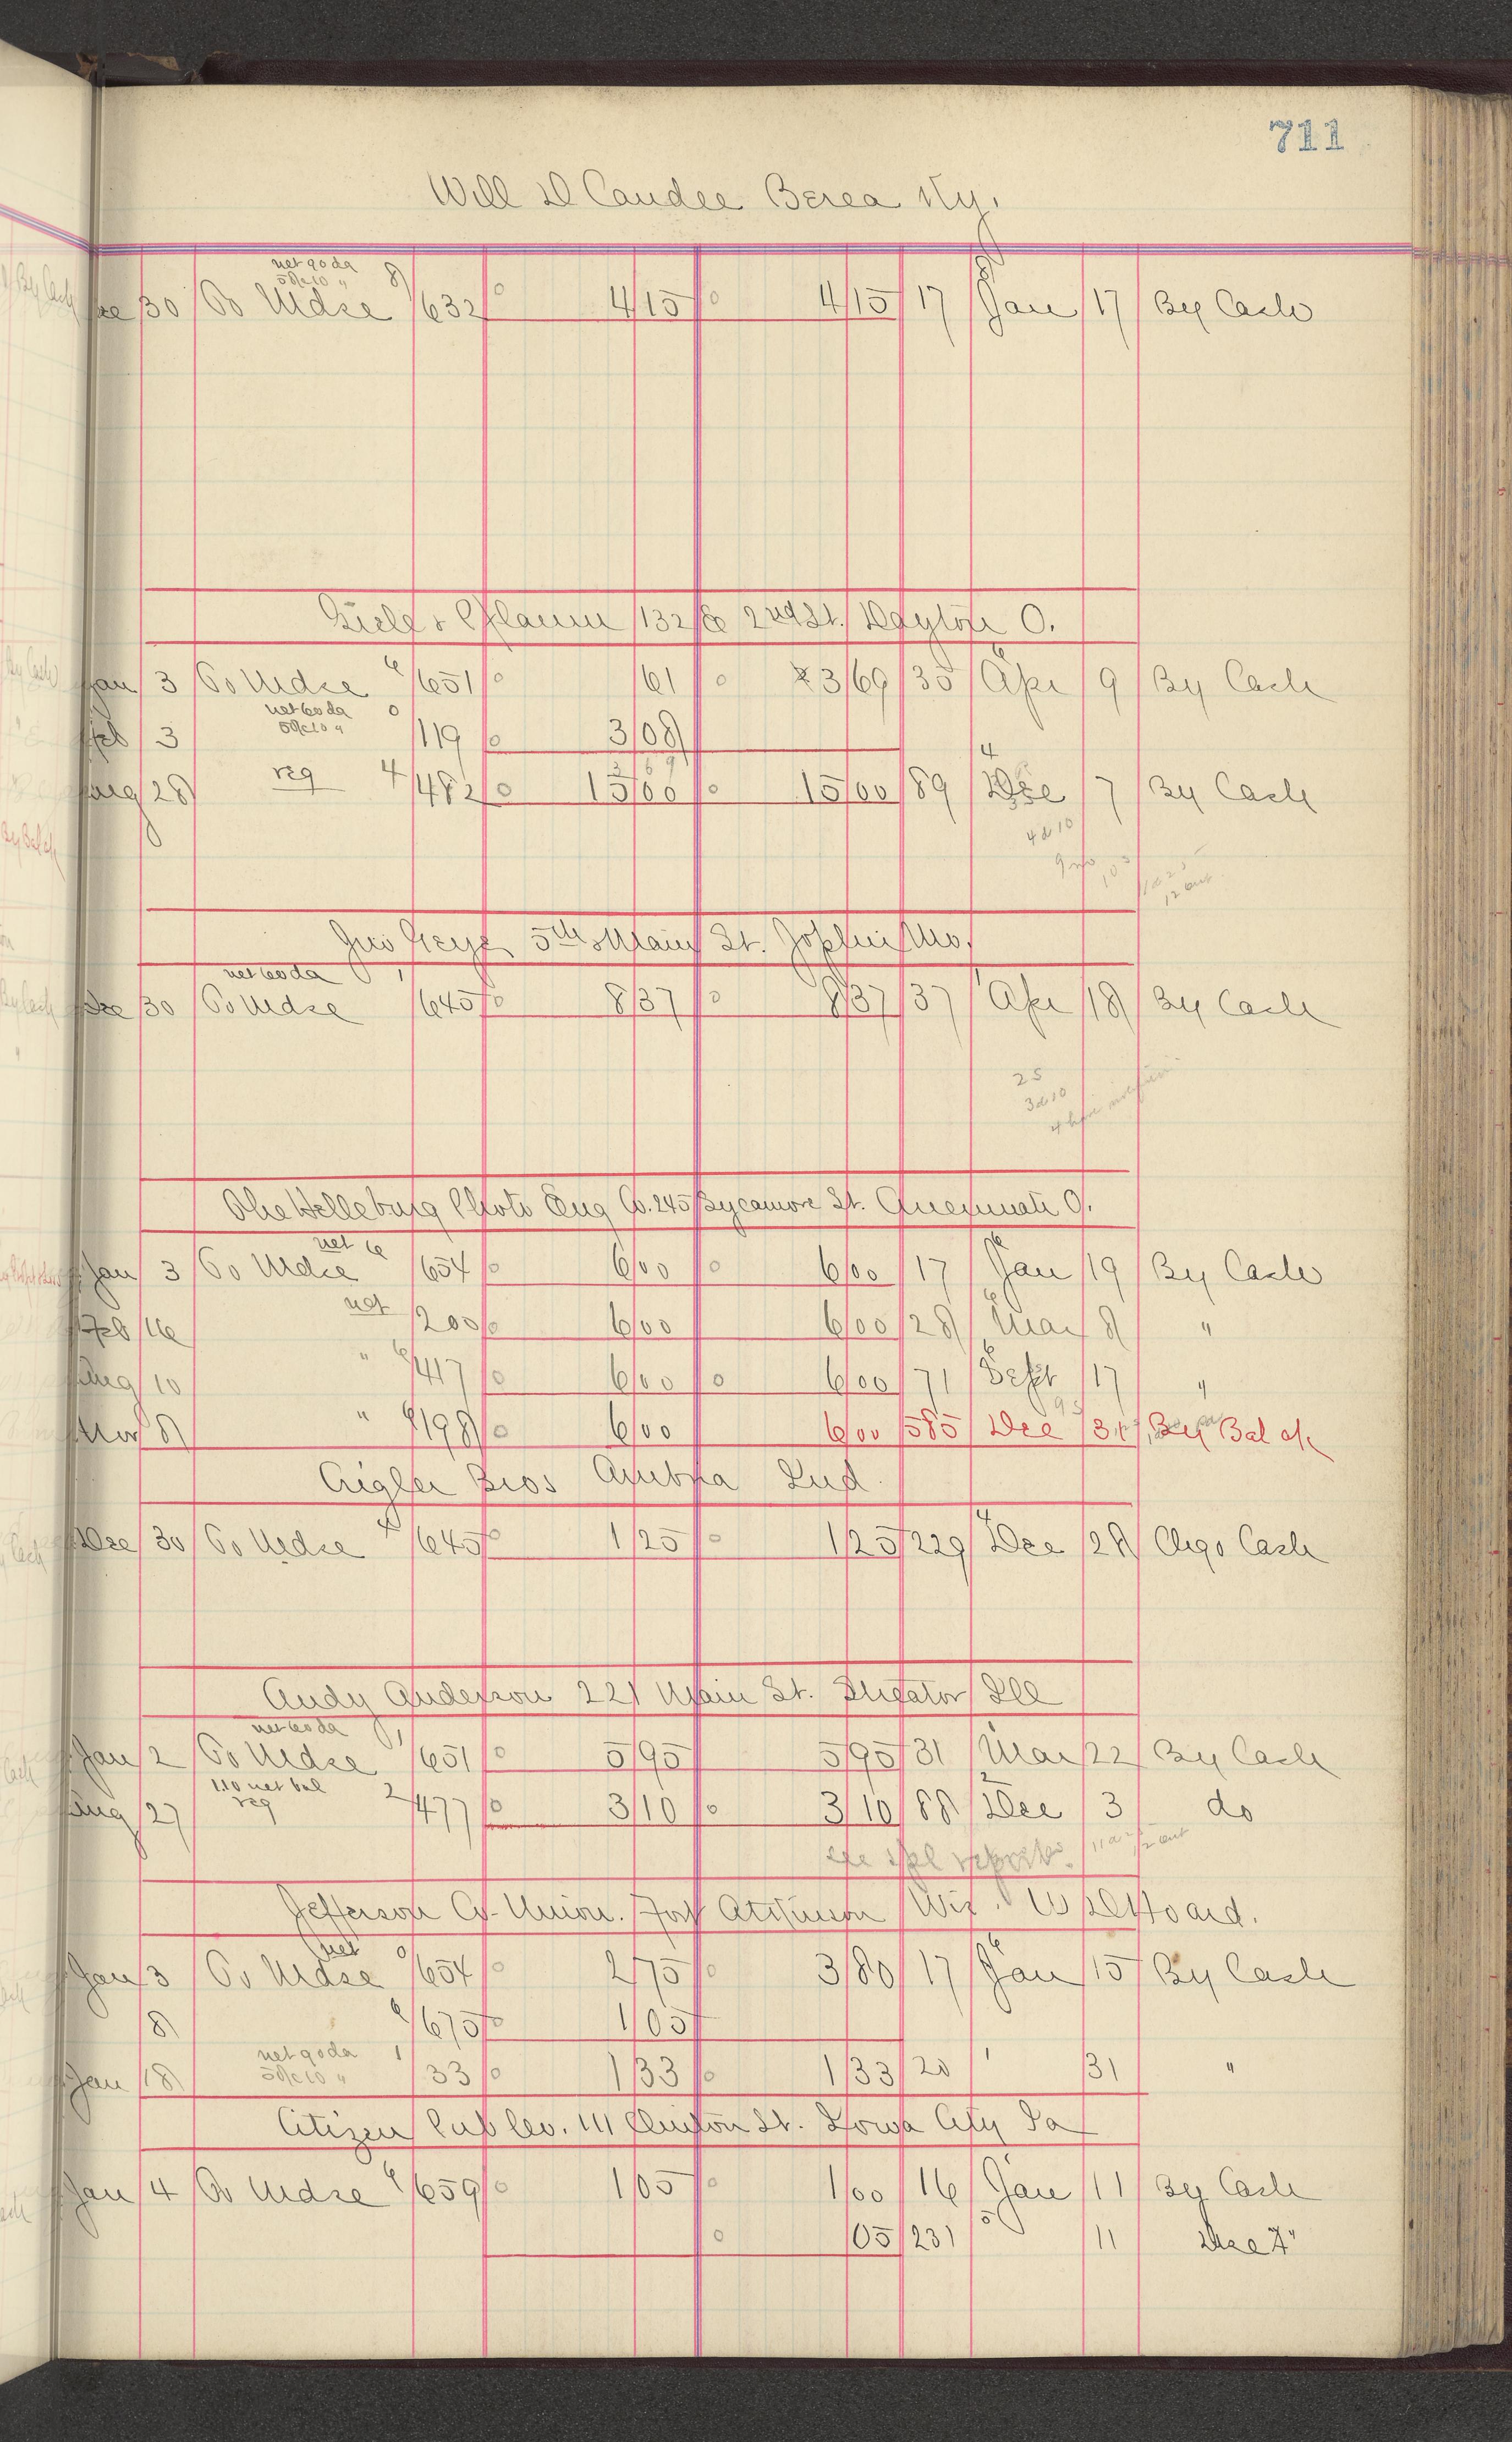 711
Will D Candee Berea Ky.
net 90 da
5% 10 "
30 To Mdse 8 632 4 15 4 15 17 Jan 17 By Cash
& Pflaum 132 E 2nd St. Dayton O.
Jan 3 To Mdse 6 651 61 3 69 35 Apr 9 By Cash
net 60 da
5% 10 "
Feb 3 0 119 3 08
3 69
Aug 28 reg 4 482 15 00 15 00 89 4 Dec 7 By Cash
4 d 10
12 out
5th & Main St. Joplin Mo.
net 60 da
Dec 30 To Mdse 1 645 8 37 8 37 37 Apr 18 By Cash
25
3 d 10
The Helleburg Photo Eng Co. 245 Sycamore St. Cincinnati O.
net 6
Jan 3 To Mdse 654 6 00 6 00 17 Jan 19 By Cash
Feb 16 net 200 6 00 6 00 28 Mar 8 "
Aug 10 " 6 417 6 00 6 00 71 Sept 17 "
Nov 8 " 6 198 6 00 6 00 585 Dec 31 By Bal a/c
Crigler Bros Ind
Dec 30 To Mdse 4 645 1 25 1 25 229 Dec 28 Chgo Cash
Andy Anderson 221 Main St. Streator Ill
net 60 da
Jan 2 To Mdse 1 651 5 95 5 95 31 Mar 22 By Cash
1 10 net bal
Aug 27 reg 2 477 3 10 3 10 88 2 Dec 3 do
see spl reports.
Jefferson Co. Union. Fort Atkinson Wis. W D Hoard.
net
Jan 3 To Mdse 0 654 2 75 3 80 17 6 Jan 15 By Cash
8 6 675 1 05
net 90 da
5% 10 "
Jan 18 1 33 1 33 1 33 20 31 "
Citizen Pub Co. 111 Clinton St. Iowa City Ia
Jan 4 To Mdse 6 659 1 05 1 00 16 Jan 11 By Cash
05 231 5 11